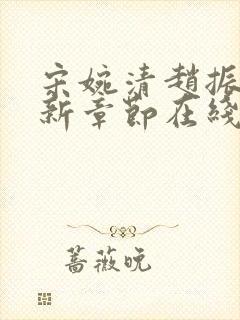 宋婉清趙振
新章節在綫
薔薇晚